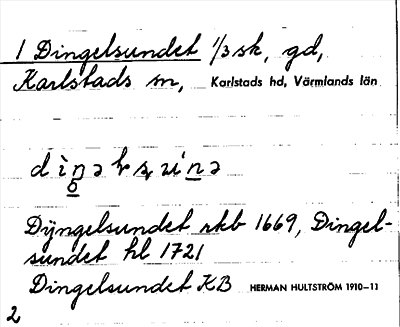 1 Dingelsundet 1/3 sk, gd,
Karlstads sn, Karlstads hd, Värmlands län
Dÿngelsundet rkb 1669, Dingel-
sundet hl 1721
Dingelsundet KB HERMAN HULTSTRÖM 1910–11
2